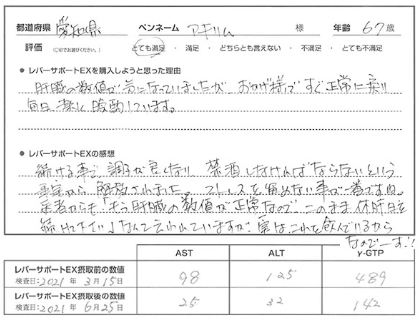 都道府県 愛知県 ペンネーム アキリム 様 年齢 67歳
評価 (○印でお選びください。) とても満足 ・ 満足 ・ どちらとも言えない ・ 不満足 ・ とても不満足
● レバーサポートEXを購入しようと思った理由
肝臓の数値が気になっていましたが、おかげ様ですぐ正常に戻り
毎日楽に服用しています。
● レバーサポートEXの感想
続ける事で、調子が良くなり、禁酒しなければならないという
事から、解放されました。ストレスを溜めない事が一番ですね。
医者からも「もう肝臓の数値が正常なので、このまま休肝日を
続けて下さい」なんて言われていますが、実はこれを飲んでいるから
なのでーす!!
AST ALT γ-GTP
レバーサポートEX摂取前の数値
検査日:2021年 3月15日 98 125 489
レバーサポートEX摂取後の数値
検査日:2021年 6月25日 25 32 142